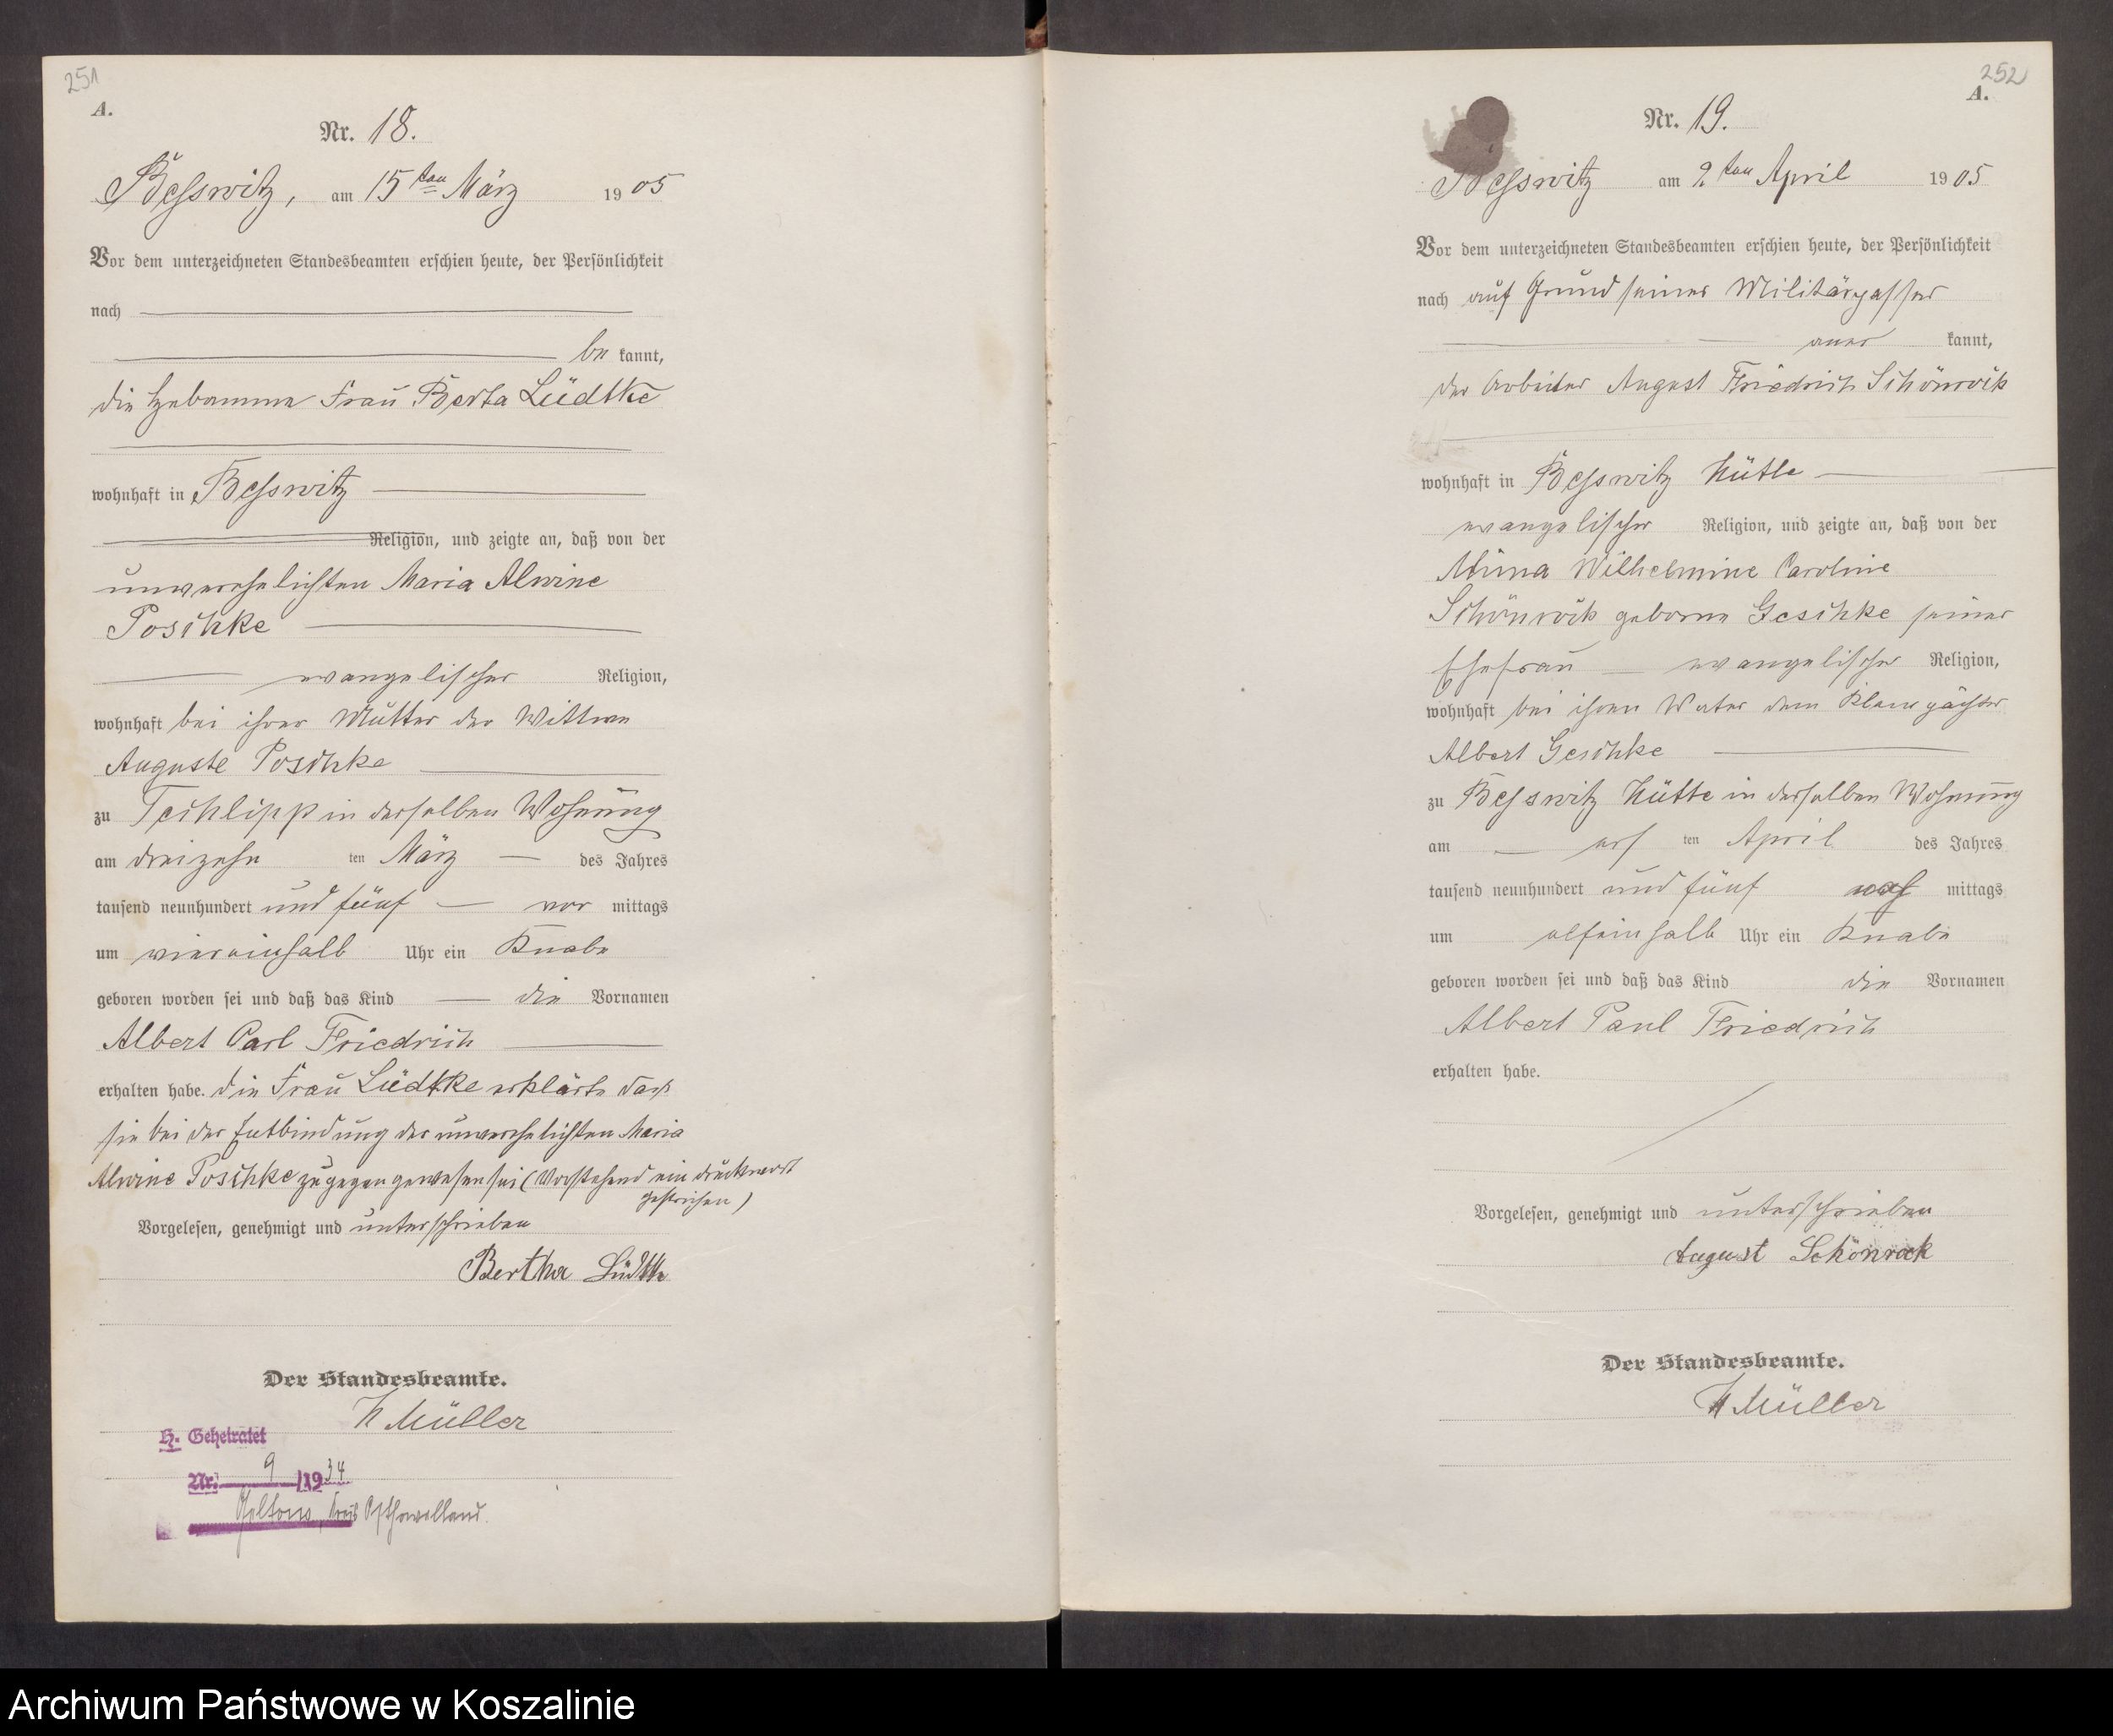 251
A.
Nr. 18.
Besswitz, am 15ten März 1905
Vor dem unterzeichneten Standesbeamten erschien heute, der Persönlichkeit
nach
be kannt,
die Hebamme Frau Berta Lüdtke
wohnhaft in Besswitz
Religion, und zeigte an, daß von der
unverehelichten Maria Alwine
Poschke
evangelischer Religion,
wohnhaft bei ihrer Mutter der Wittwe
Auguste Poschke
zu Techlipp in derselben Wohnung
am dreizehn ten März des Jahres
tausend neunhundert und fünf vor mittags
um viereinhalb Uhr ein Knabe
geboren worden sei und daß das Kind die Vornamen
Albert Carl Friedrich
erhalten habe. die Frau Lüdtke erklärte dass
sie bei der Entbindung der unverehelichten Maria
Alwine Poschke zugegen gewesen sei (Vorstehend ein Druckwort
gestrichen)
Vorgelesen, genehmigt und unterschrieben
Bertha Lüdtke
Der Standesbeamte.
Müller
H. Geheiratet
Nr. 9 /1934
Geltow, Kreis Osthavelland.
252
A.
Nr. 19.
Besswitz am 2ten April 1905
Vor dem unterzeichneten Standesbeamten erschien heute, der Persönlichkeit
nach auf Grund seines Militärpasses
aner kannt,
der Arbeiter August Friedrich Schönrock
wohnhaft in Besswitz Hütte
evangelischer Religion, und zeigte an, daß von der
Minna Wilhelmine Caroline
Schönrock geborne Geschke seiner
Ehefrau evangelischer Religion,
wohnhaft bei ihren Vater dem
Albert Geschke
zu Besswitz Hütte in derselben Wohnung
am ers ten April des Jahres
tausend neunhundert und fünf nach mittags
um elfeinhalb Uhr ein Knabe
geboren worden sei und daß das Kind die Vornamen
Albert Paul Friedrich
erhalten habe.
Vorgelesen, genehmigt und unterschrieben
August Schönrock
Der Standesbeamte.
Müller
Archiwum Państwowe w Koszalinie